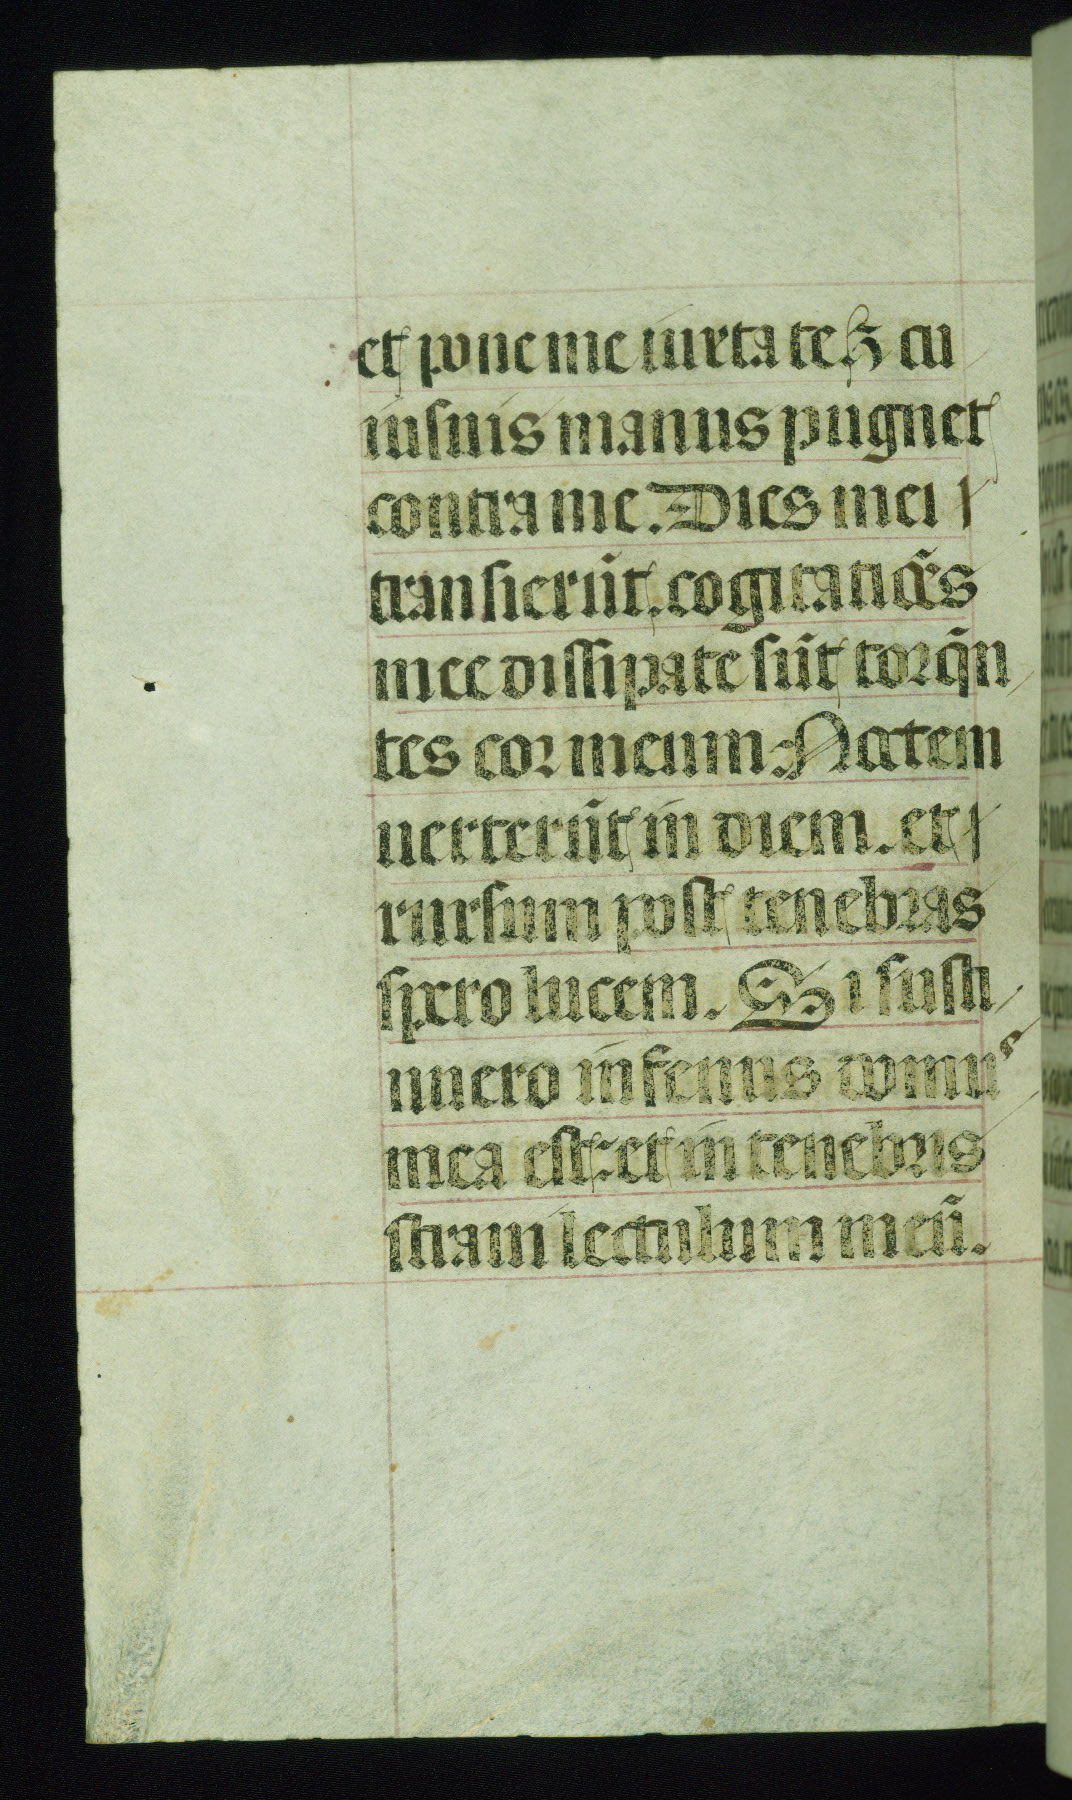 et pone me iuxta te ꝫ cu
iusuis manus pugnet
contra me. Dies mei
transierūt. cogitatiōēs
mee dissipate sūt torq̄n
tes cor meum. Noctem
uerterūt in diem. et
rursum post tenebras
spero lucem. Si susti
nuero infernus domus
mea est: et in tenebris
straui lectulum meū.